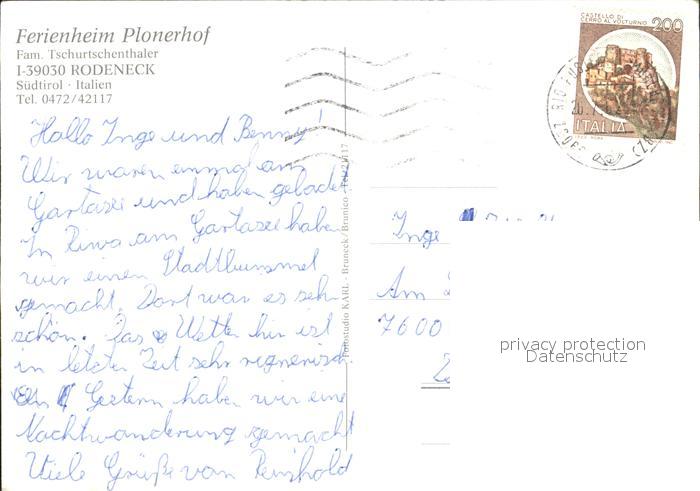 Ferienheim Plonerhof
Fam. Tschurtschenthaler
I-39030 RODENECK
Südtirol · Italien
Tel. 0472/42117
CASTELLO DI
CERRO AL VOLTURNO 200
ITALIA
Hallo Inge und Benny!
Wir waren einmal am
Gartasee und haben gebadet
In Riwa am Gartasee haben
wir einen Stadtbummel
gemacht. Dort war es sehr
schön. Das Wetter hir ist
in letzter Zeit sehr regnerisch.
Gestern haben wir eine
Nachtwanderung gemacht
Viele Grüße von Reinhold
Fotostudio KARL - Bruneck/Brunico - Tel. 21117
Inge
Am
7600
privacy protection
Datenschutz